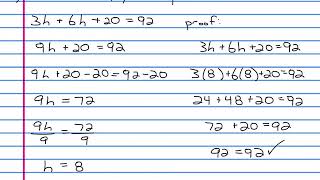 3h + 6h + 20 = 92
9h + 20 = 92
9h + 20 - 20 = 92 - 20
9h = 72
9h/9 = 72/9
h = 8
proof:
3h + 6h + 20 = 92
3(8) + 6(8) + 20 = 92
24 + 48 + 20 = 92
72 + 20 = 92
92 = 92 ✓